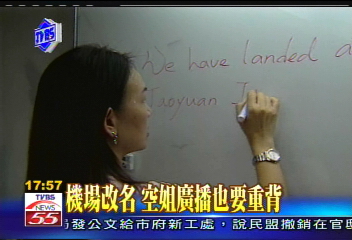 TVBS
We have landed a
Taoyuan I
機場改名 空姐廣播也要重背
17:57
TVBS
NEWS
55
局發公文給市府新工處，說民盟撤銷在官邸